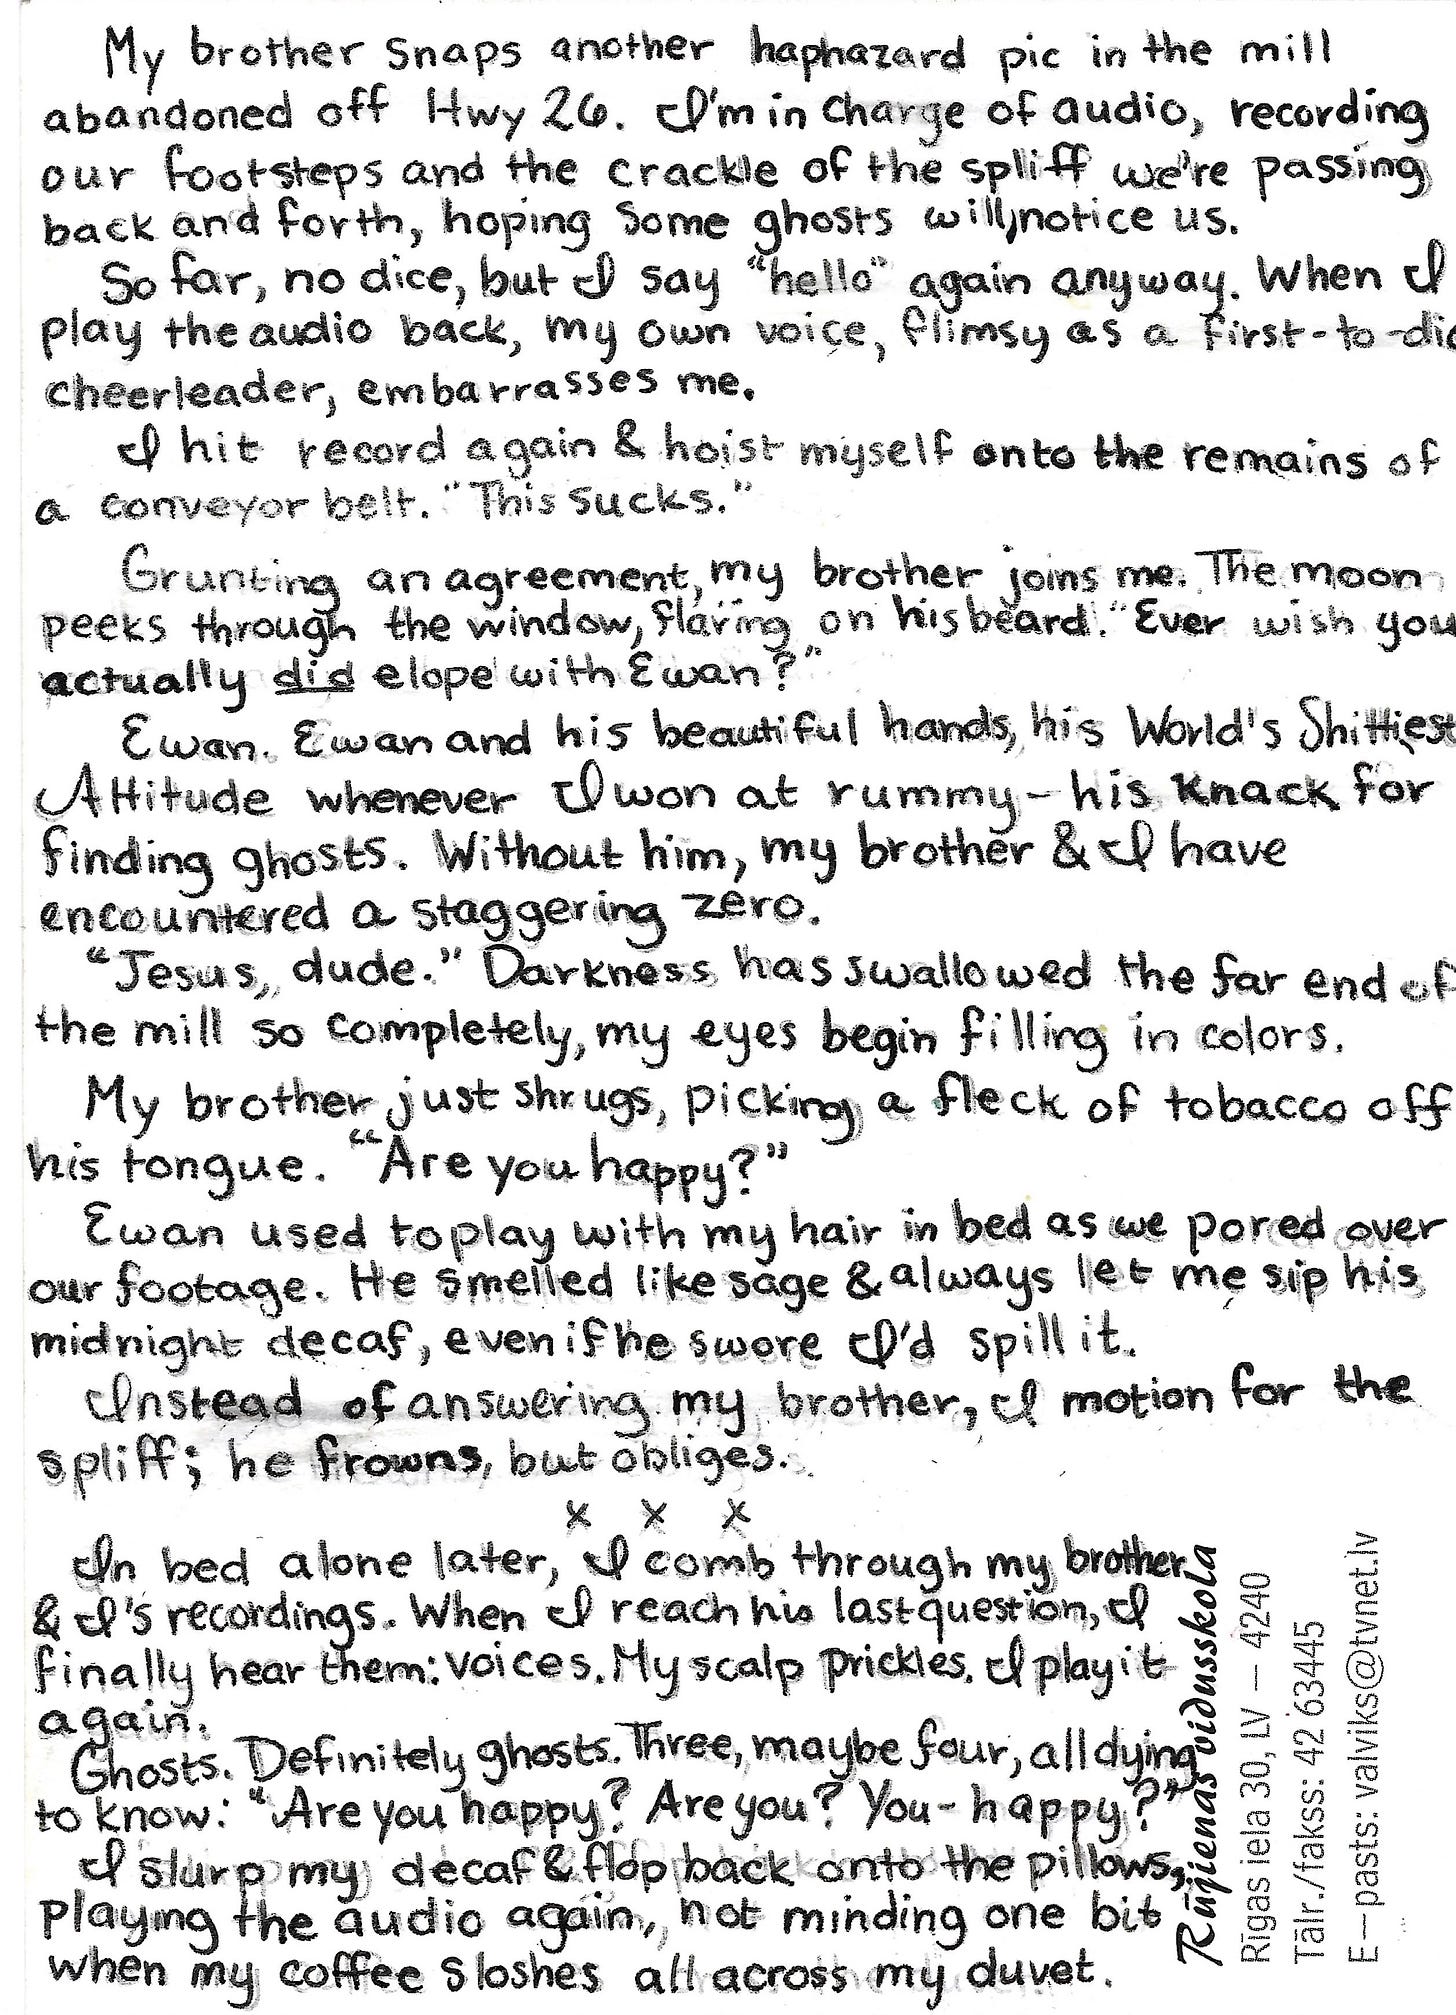 My brother snaps another haphazard pic in the mill
abandoned off Hwy 26. I'm in charge of audio, recording
our footsteps and the crackle of the spliff we're passing
back and forth, hoping some ghosts will notice us.
So far, no dice, but I say "hello" again anyway. When I
play the audio back, my own voice, flimsy as a first-to-die
cheerleader, embarrasses me.
I hit record again & hoist myself onto the remains of
a conveyor belt. "This sucks."
Grunting an agreement, my brother joins me. The moon
peeks through the window, flaring on his beard. "Ever wish you
actually did elope with Ewan?"
Ewan. Ewan and his beautiful hands, his World's Shittiest
Attitude whenever I won at rummy - his knack for
finding ghosts. Without him, my brother & I have
encountered a staggering zero.
"Jesus, dude." Darkness has swallowed the far end of
the mill so completely, my eyes begin filling in colors.
My brother just shrugs, picking a fleck of tobacco off
his tongue. "Are you happy?"
Ewan used to play with my hair in bed as we pored over
our footage. He smelled like sage & always let me sip his
midnight decaf, even if he swore I'd spill it.
Instead of answering my brother, I motion for the
spliff; he frowns, but obliges.
x x x
In bed alone later, I comb through my brother
& I's recordings. When I reach his last question, I
finally hear them: voices. My scalp prickles. I play it
again.
Ghosts. Definitely ghosts. Three, maybe four, all dying
to know: "Are you happy? Are you? You - happy?"
I slurp my decaf & flop back onto the pillows,
playing the audio again, not minding one bit
when my coffee sloshes all across my duvet.
Rūjienas vidusskola
Rīgas iela 30, LV – 4240
Tālr./fakss: 42 63445
E–pasts: valviks@tvnet.lv